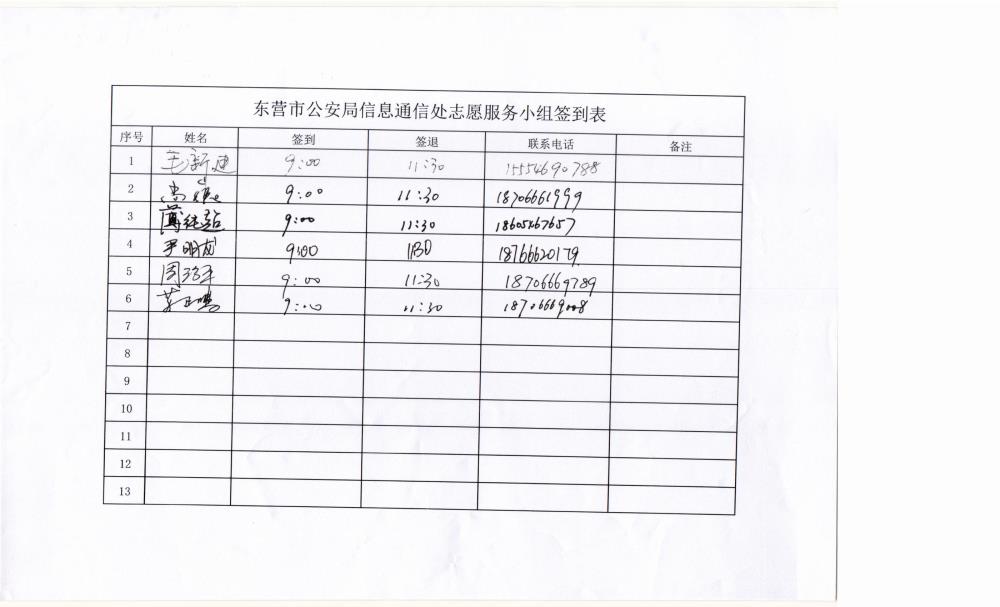 东营市公安局信息通信处志愿服务小组签到表
序号 姓名 签到 签退 联系电话 备注
1 王新建 9:00 11:30 15554690788
2 9:00 11:30 18706661999
3 9:00 11:30 18605467657
4 尹明龙 9:00 11:30 18766620179
5 周 9:00 11:30 18706669789
6 9:00 11:30 18706669008
7
8
9
10
11
12
13